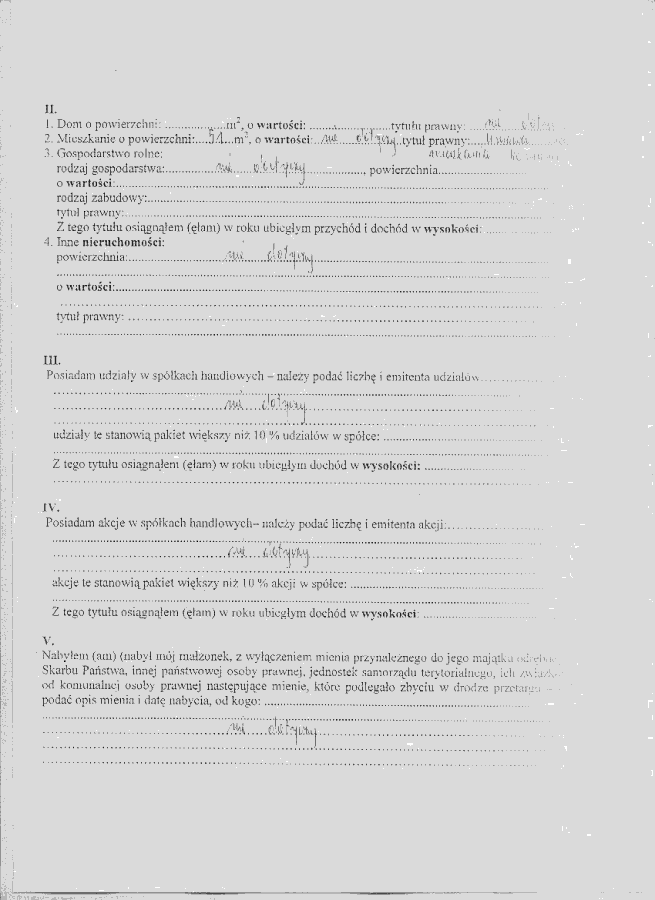 II.
1. Dom o powierzchni: ....................m², o wartości: ..........................tytułu prawny: ..... nie dotyczy
2. Mieszkanie o powierzchni:....51...m², o wartości: ..nie......dotyczy..tytuł prawny:....
mieszkania
3. Gospodarstwo rolne:
rodzaj gospodarstwa:................nie......dotyczy..................., powierzchnia..............................
o wartości:........................................................................................................................
rodzaj zabudowy:................................................................................................................
tytuł prawny:......................................................................................................................
Z tego tytułu osiągnąłem (ęłam) w roku ubiegłym przychód i dochód w wysokości: ....................
4. Inne nieruchomości:
powierzchnia:..............................nie.......dotyczy..........................................................
.........................................................................................................................................
o wartości:........................................................................................................................
.........................................................................................................................................
tytuł prawny: .....................................................................................................................
.........................................................................................................................................
III.
Posiadam udziały w spółkach handlowych – należy podać liczbę i emitenta udziałów.....................
.........................................................................................................................................
....................................................nie.....dotyczy..........................................................
.........................................................................................................................................
udziały te stanowią pakiet większy niż 10 % udziałów w spółce: ...............................................
.........................................................................................................................................
Z tego tytułu osiągnąłem (ęłam) w roku ubiegłym dochód w wysokości: ...................................
.........................................................................................................................................
IV.
Posiadam akcje w spółkach handlowych– należy podać liczbę i emitenta akcji:..............................
.........................................................................................................................................
.....................................................nie.....dotyczy.........................................................
.........................................................................................................................................
akcje te stanowią pakiet większy niż 10 % akcji w spółce: .......................................................
.........................................................................................................................................
Z tego tytułu osiągnąłem (ęłam) w roku ubiegłym dochód w wysokości: ...................................
V.
Nabyłem (am) (nabył mój małżonek, z wyłączeniem mienia przynależnego do jego majątku
Skarbu Państwa, innej państwowej osoby prawnej, jednostek samorządu terytorialnego, ich
od komunalnej osoby prawnej następujące mienie, które podlegało zbyciu w drodze przetargu –
podać opis mienia i datę nabycia, od kogo: ............................................................................
.........................................................................................................................................
......................................................nie......dotyczy.......................................................
.........................................................................................................................................
.........................................................................................................................................